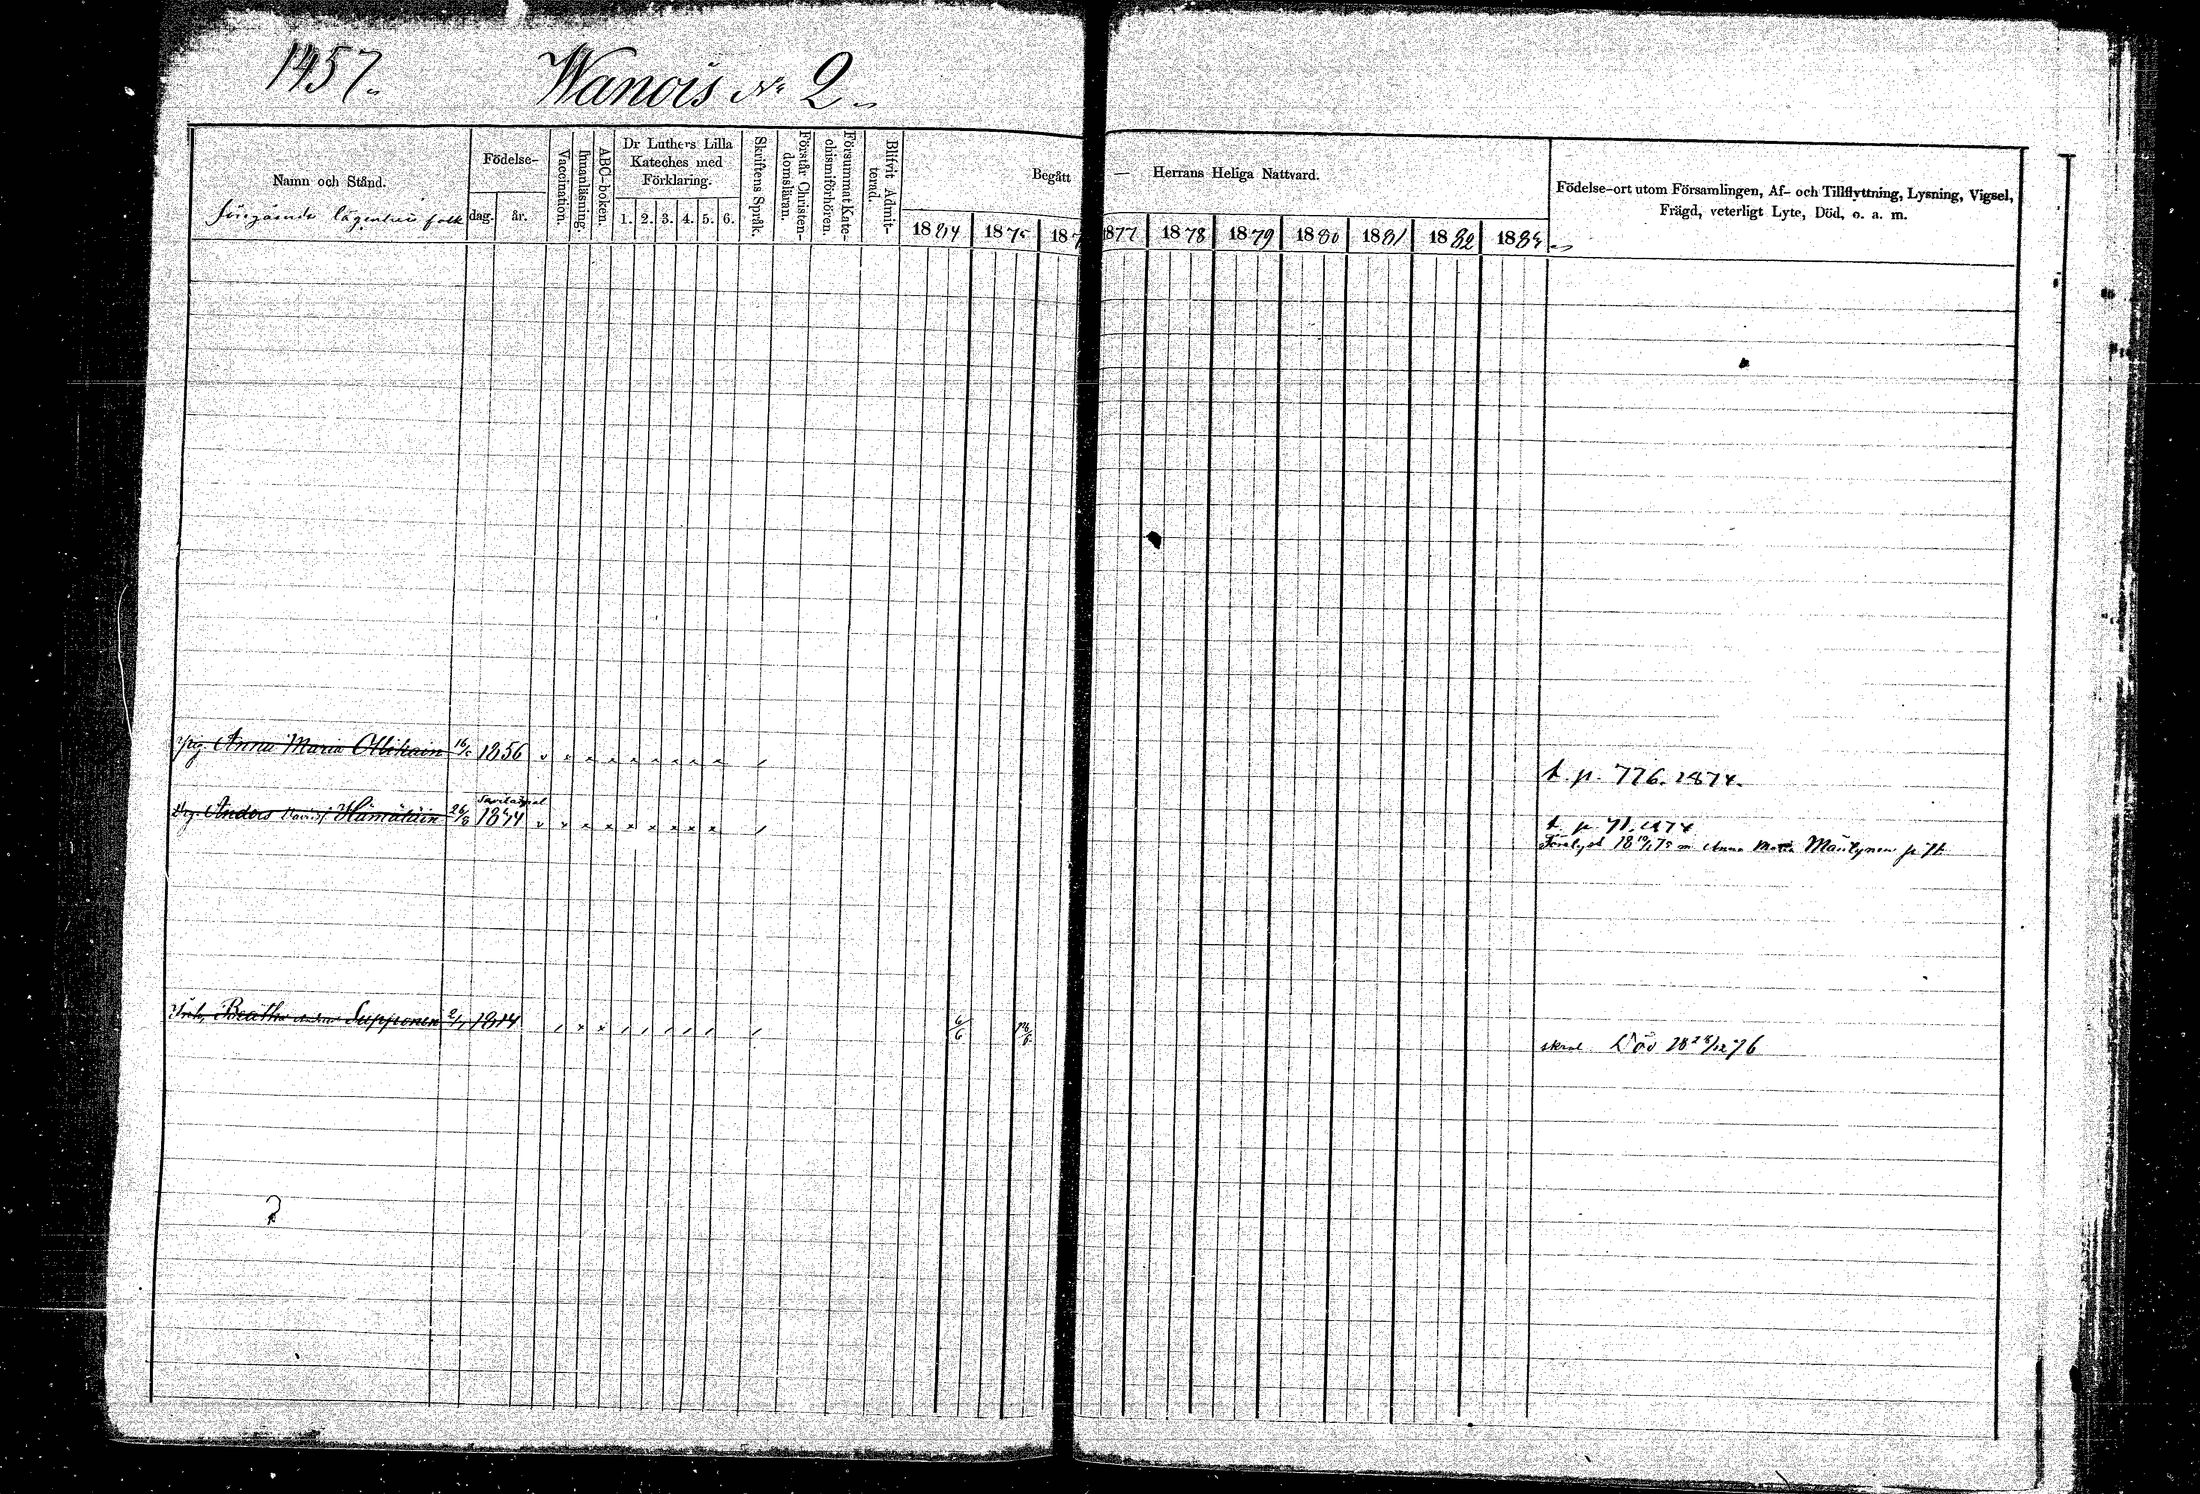 1457.
Wanois No 2
Namn och Stånd.
Födelse-
dag.
år.
Vaccination.
Innanläsning.
ABC-boken.
Dr Luthers Lilla
Kateches med
Förklaring.
1. 2. 3. 4. 5. 6.
Skriftens Språk.
Förstår Christen-
domsläran.
Försummat Kate-
chismiförhören.
Blifvit Admit-
terad.
Begått — Herrans Heliga Nattvard.
1875 1877 1878 1879 1880 1881 1882
Födelse-ort utom Församlingen, Af- och Tillflyttning, Lysning, Vigsel,
Frägd, veterligt Lyte, Död, o. a. m.
Föregående lägenhets folk
Pig. Anna Maria Ollikain 1856
t. p. 776. 1874.
Drg. Anders Hämäläin 26/8
t. p. 71. 1874
Anna Maria Mäntynen
Beatha Supponen 2/1 1814 6/6
Död 18 28/12 76